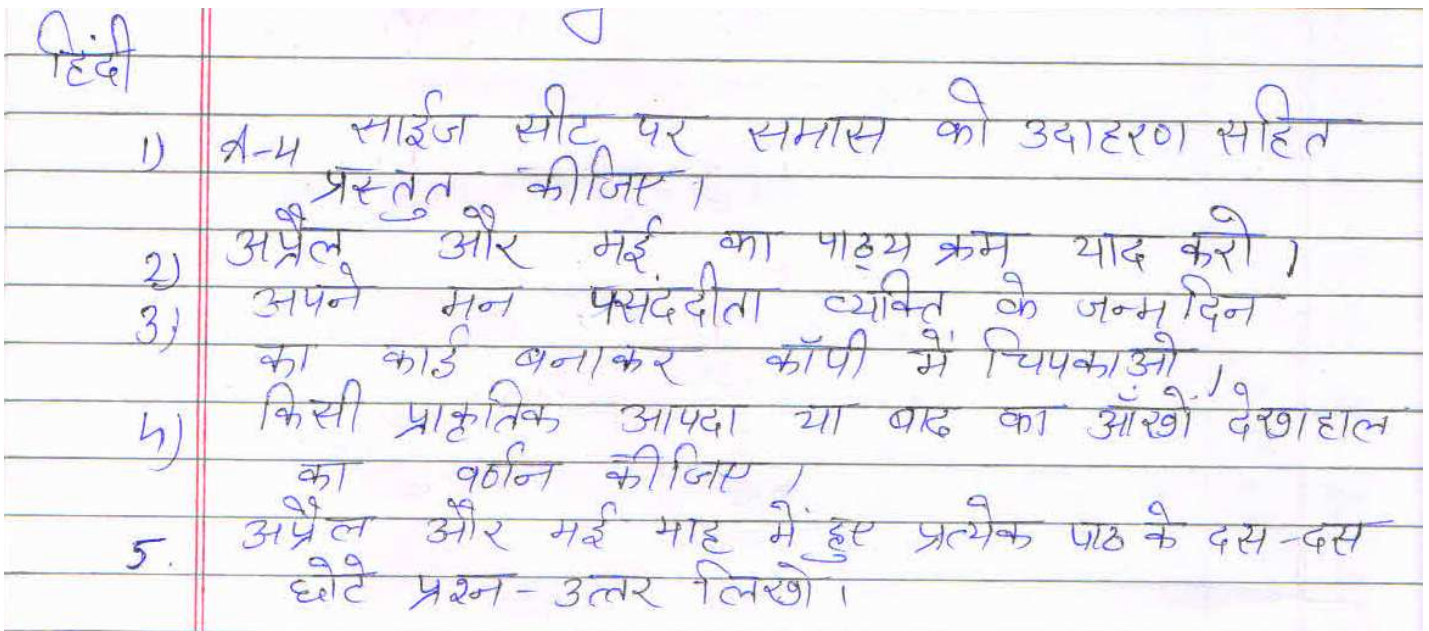 हिंदी
1) A-4 साईज सीट पर समास को उदाहरण सहित
प्रस्तुत कीजिए।
2) अप्रैल और मई का पाठ्य क्रम याद करो।
3) अपने मन पसंददीता व्यक्ति के जन्म दिन
का कार्ड बनाकर कॉपी में चिपकाओ।
4) किसी प्राकृतिक आपदा या बाढ का आँखों देखा हाल
का वर्णन कीजिए।
5. अप्रैल और मई माह में हुए प्रत्येक पाठ के दस-दस
छोटे प्रश्न-उत्तर लिखो।